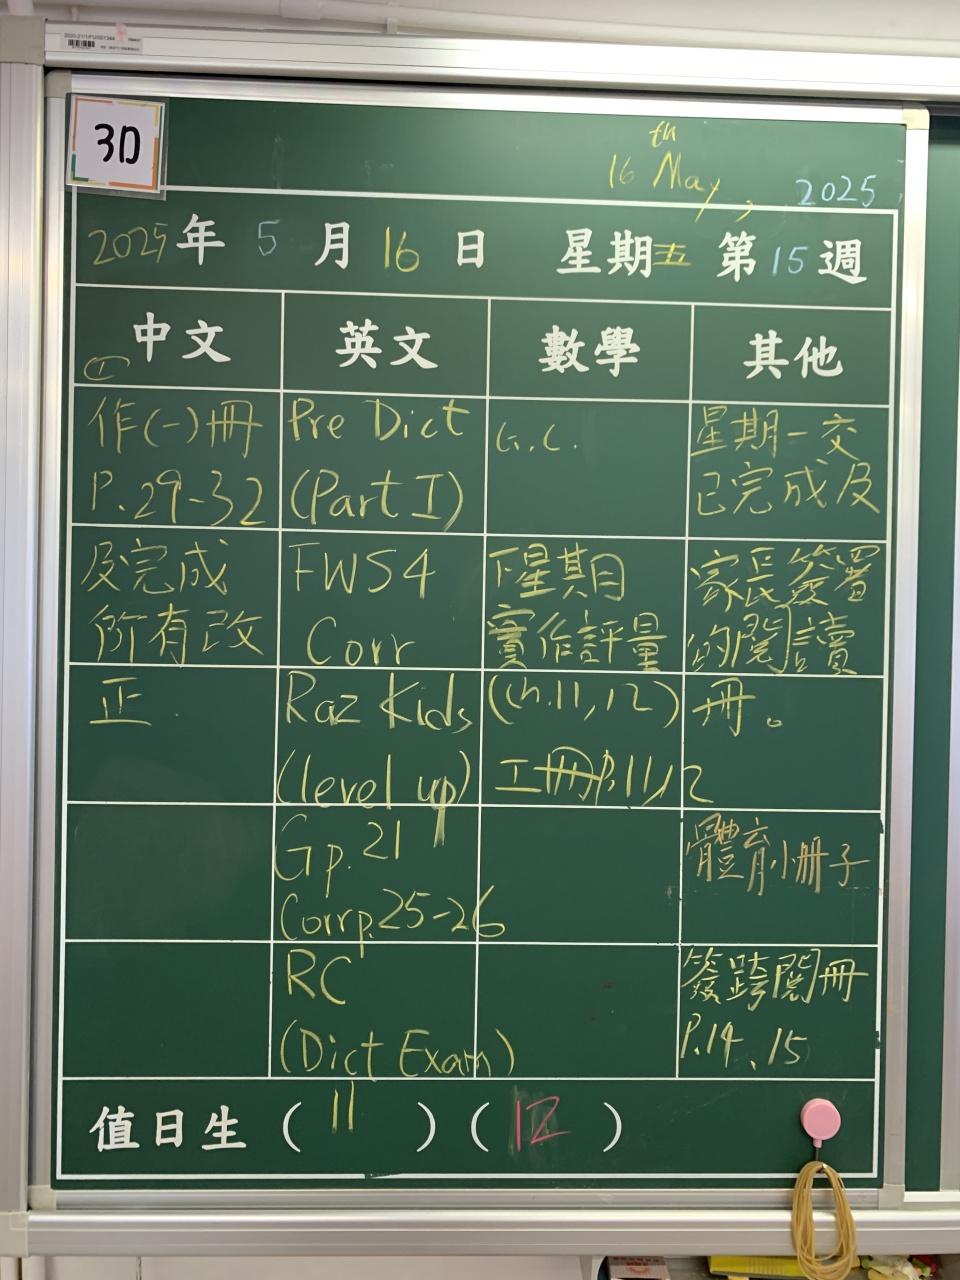 3D
16th May, 2025
2025年 5月 16日 星期五 第15週
中文
①
作(一)冊
P.29-32
及完成
所有改
正
英文
Pre Dict
(Part I)
FWS4
Corr
Raz Kids
(level up)
Gp.21
Corrp.25-26
RC
(Dict Exam)
數學
G.C.
下星期
實作評量
(Ch.11,12)
工冊P.11,12
其他
星期一交
已完成及
家長簽署
的閱讀
冊。
體育小冊子
簽跨閱冊
P.14、15
值日生（11）（12）